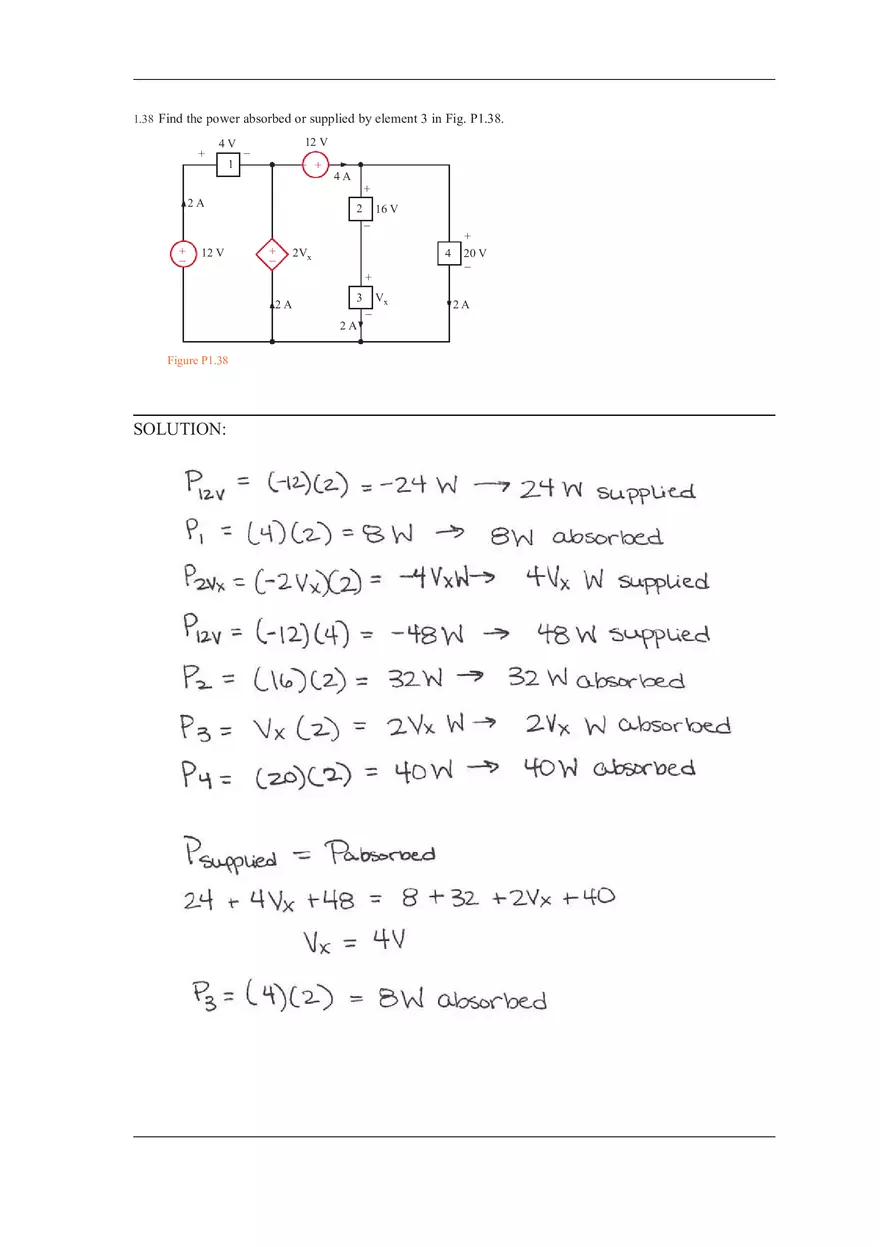 1.38 Find the power absorbed or supplied by element 3 in Fig. P1.38.
4 V
12 V
+ −
1
− +
4 A
+
2 A
2 16 V
−
+
+ − 12 V
+ − 2Vx
4 20 V
−
+
2 A
3 Vx
−
2 A
2 A
Figure P1.38
SOLUTION:
P12V = (-12)(2) = -24 W → 24 W supplied
P1 = (4)(2) = 8 W → 8W absorbed
P2Vx = (-2Vx)(2) = -4VxW → 4Vx W supplied
P12V = (-12)(4) = -48W → 48 W supplied
P2 = (16)(2) = 32W → 32 W absorbed
P3 = Vx (2) = 2Vx W → 2Vx W absorbed
P4 = (20)(2) = 40W → 40W absorbed
Psupplied = Pabsorbed
24 + 4Vx + 48 = 8 + 32 + 2Vx + 40
Vx = 4V
P3 = (4)(2) = 8W absorbed